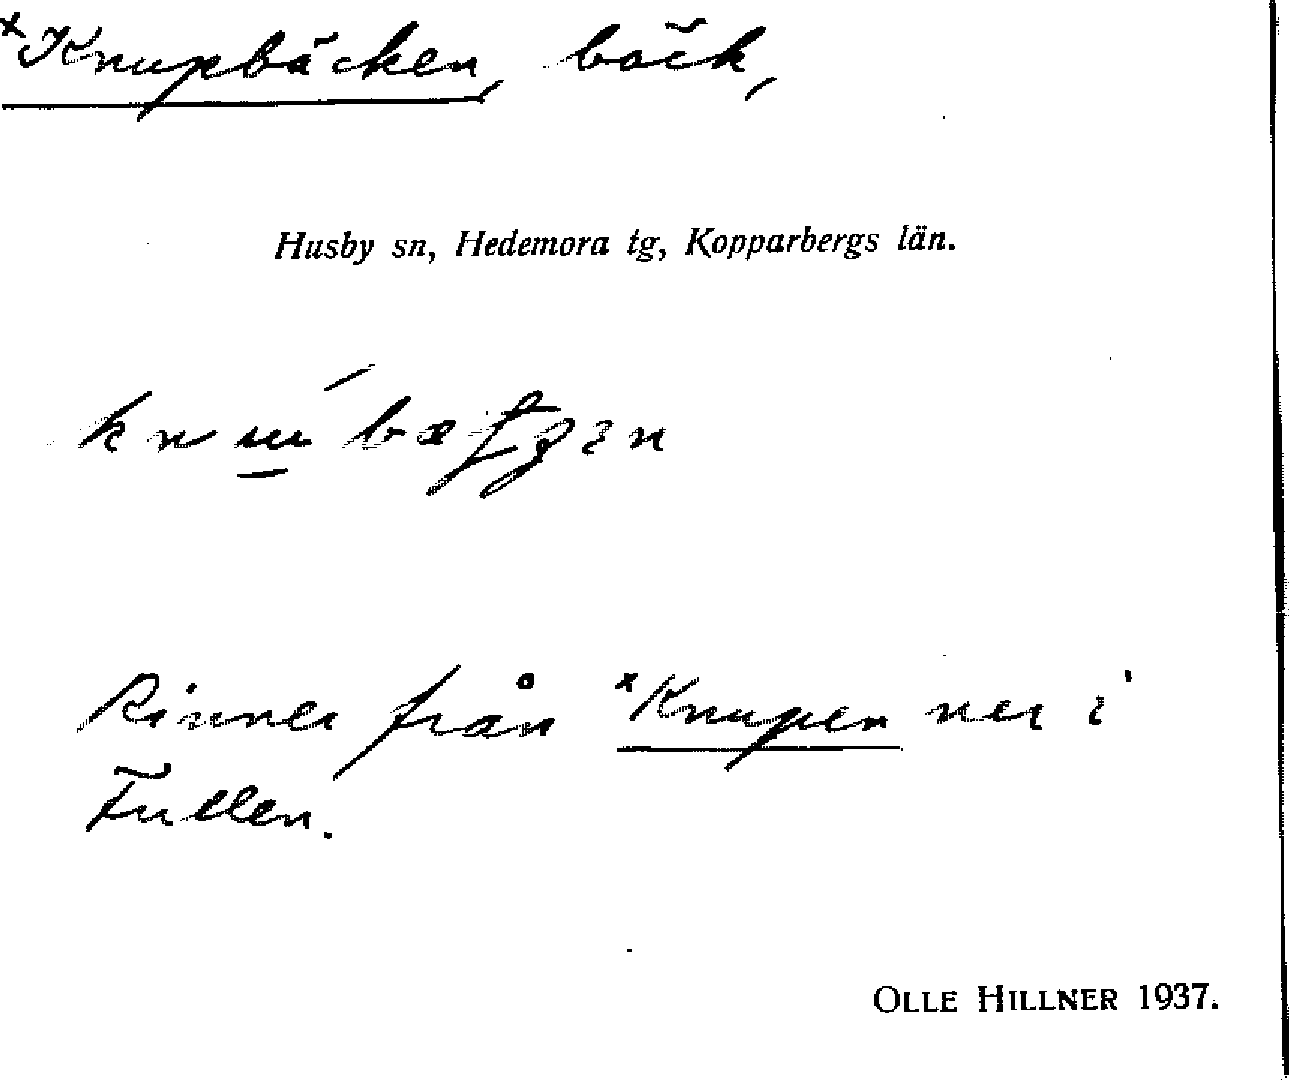 ×Knupbäcken, bäck,
Husby sn, Hedemora tg, Kopparbergs län.
Rinner från ×Knupen ner i
Fullen.
OLLE HILLNER 1937.